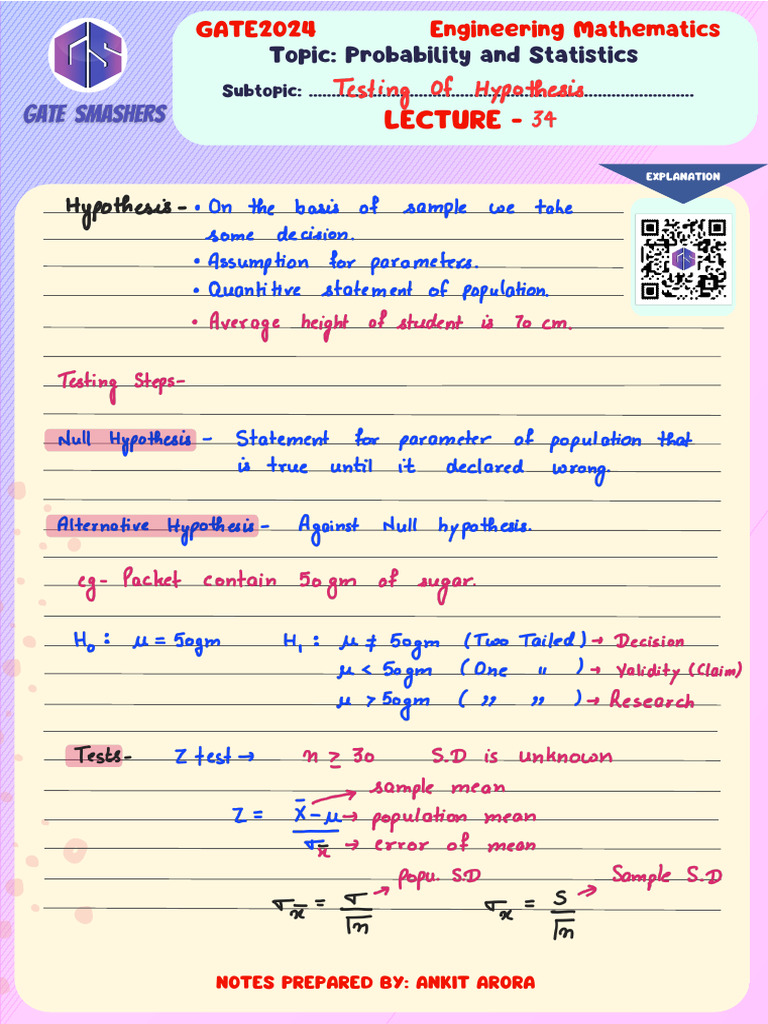 GATE2024 Engineering Mathematics
Topic: Probability and Statistics
Subtopic: Testing Of Hypothesis
GATE SMASHERS
LECTURE - 34
EXPLANATION
Hypothesis - • On the basis of sample we take
some decision.
• Assumption for parameters.
• Quantitive statement of population.
• Average height of student is 70 cm.
Testing Steps-
Null Hypothesis - Statement for parameter of population that
is true until it declared wrong.
Alternative Hypothesis - Against Null hypothesis.
eg- Packet contain 50gm of sugar.
H₀ : μ = 50gm H₁ : μ ≠ 50gm (Two Tailed) → Decision
μ < 50gm (One " ) → Validity (Claim)
μ > 50gm ( " " ) → Research
Tests- Z test → n ≥ 30 S.D is unknown
sample mean
Z = X̄ - μ → population mean
σx̄ → error of mean
popu. S.D Sample S.D
σx̄ = σ/√n σx = S/√n
NOTES PREPARED BY: ANKIT ARORA